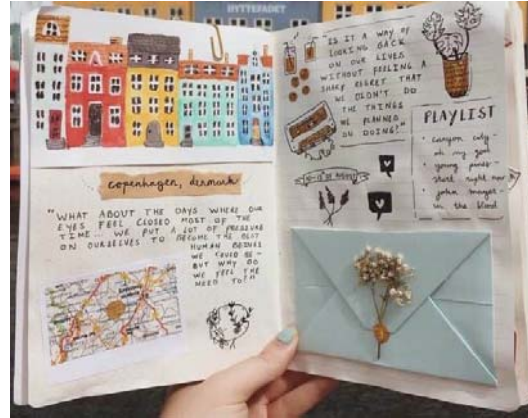 HYTTEFADET
copenhagen, denmark
"WHAT ABOUT THE DAYS WHERE OUR
EYES FEEL CLOSED MOST OF THE
TIME... WE PUT A LOT OF PRESSURE
ON OURSELVES TO BECOME THE BEST
HUMAN BEINGS
WE COULD BE -
BUT WHY DO
WE FEEL THE
NEED TO?"
IS IT A WAY OF
LOOKING BACK
ON OUR LIVES
WITHOUT FEELING A
SHARP REGRET THAT
WE DIDN'T DO
THE THINGS
WE PLANNED
ON DOING?"
PLAYLIST
• canyon city -
in my
• young jones -
right now
• john mayer -
in the blood